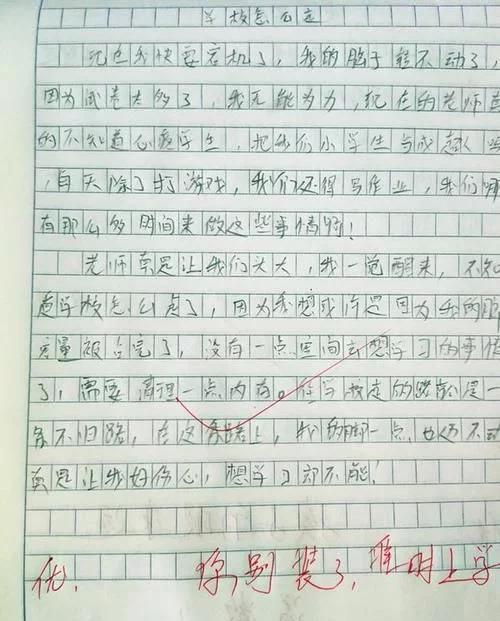 学校怎么走
现在我快要宕机了，我的脑子转不动了，
因为试卷太多了，我无能为力，现在的老师真
的不知道心疼学生，把我们小学生当成超人，当
，每天除了打游戏，我们还得写作业，我们哪
有那么多时间来做这些事情啊！
老师真是让我们头大，我一觉醒来，不知
道学校怎么走了，因为我想或许是因为我的脑
容量被占完了，没有一点空间去想学习的事情
了，需要清理一点内存。在学校走的路就是一
条不归路，在这条路上，我的脚一点也迈不动
真是让我好伤心，想学习却不能！
优. 你别装了，准时上学